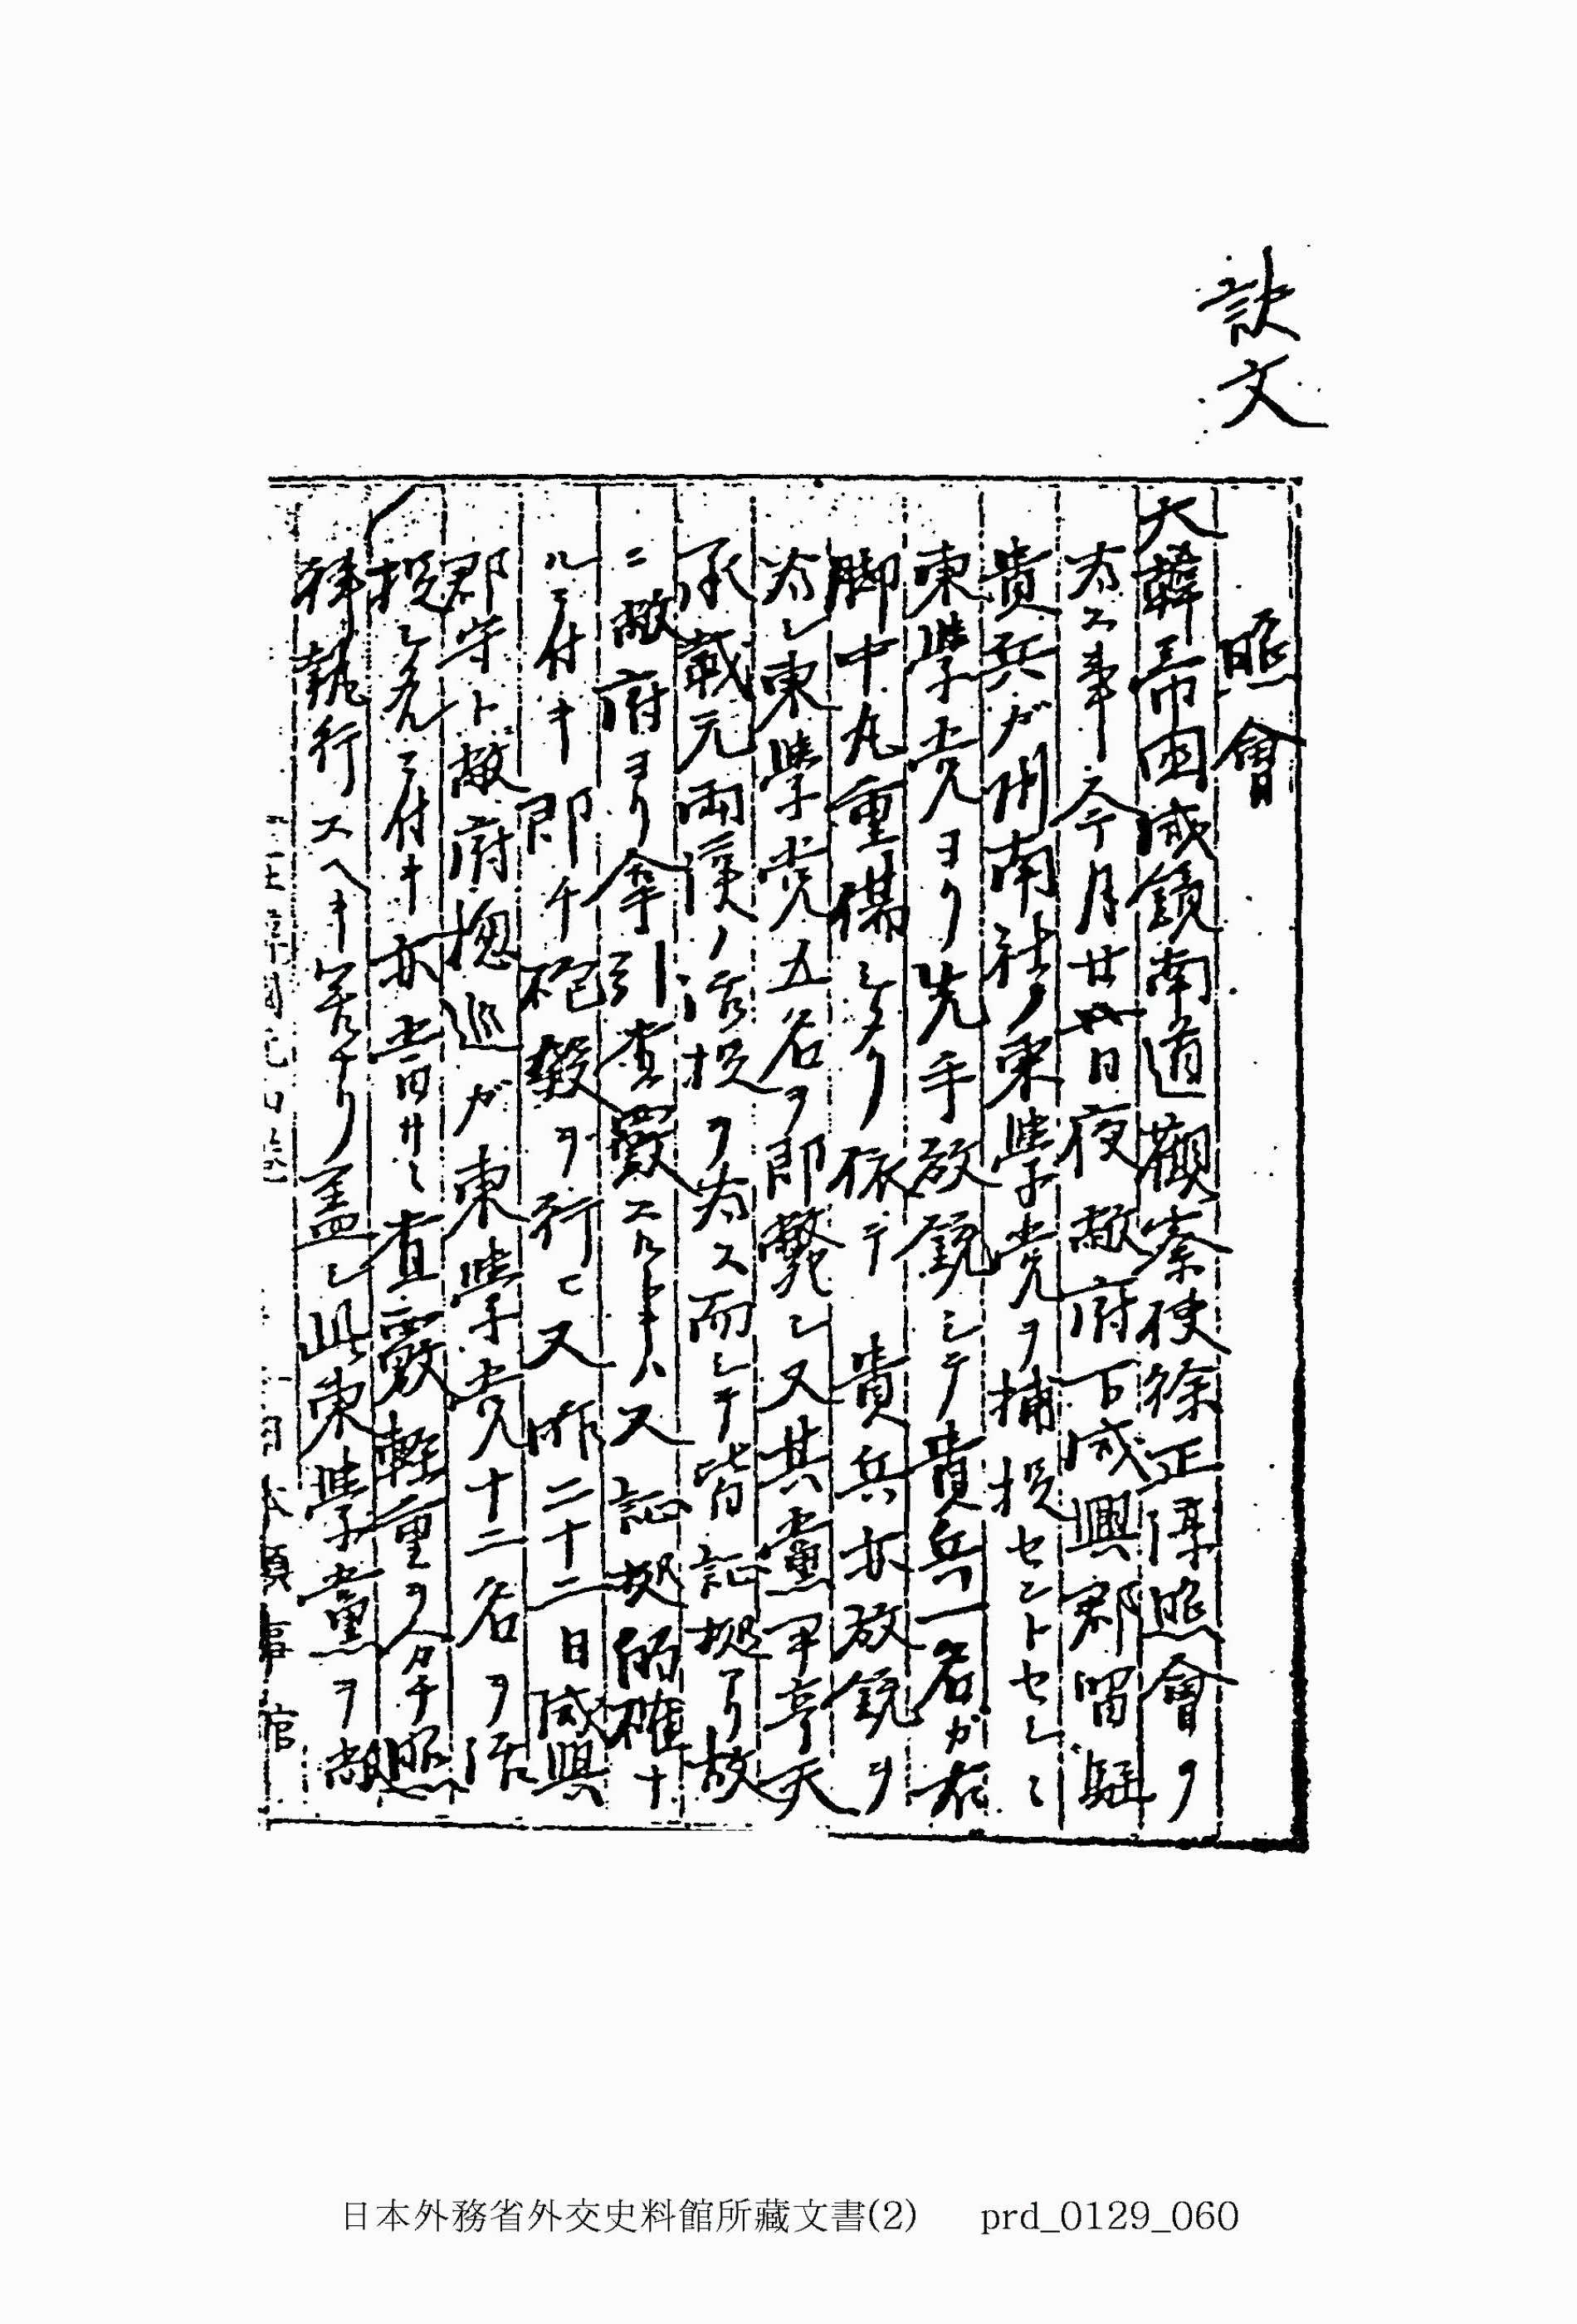 訳文
照會
大韓帝国咸鏡南道觀察使徐正淳照會ヲ
為ス事今月廿日夜敝府下咸興郡留駐
貴兵ガ州南社ノ東学党ヲ捕捉セントセシニ
東学党ヨリ先手放銃シテ貴兵一名ガ右
脚中丸重傷シタリ依テ 貴兵亦放銃ヲ
為シ東學党五名ヲ即斃シ又其黨 亨天
承載元両漢ノ活捉ヲ為ス而シテ皆証拠アリ故
ニ敝府ヨリ拿引査覈スルトキハ又証拠的確ナ
ルニ付キ即チ砲殺ヲ行ヒ又昨二十二日咸興
郡守ト敝府摠巡ガ東学党十二名ヲ活
捉シタルニ付キ亦当サニ査覈軽重ヲ分チ照
律執行スヘキ筈ナリ盖シ此東学黨ヲ尚
在 日本領事館
日本外務省外交史料館所藏文書(2) prd_0129_060